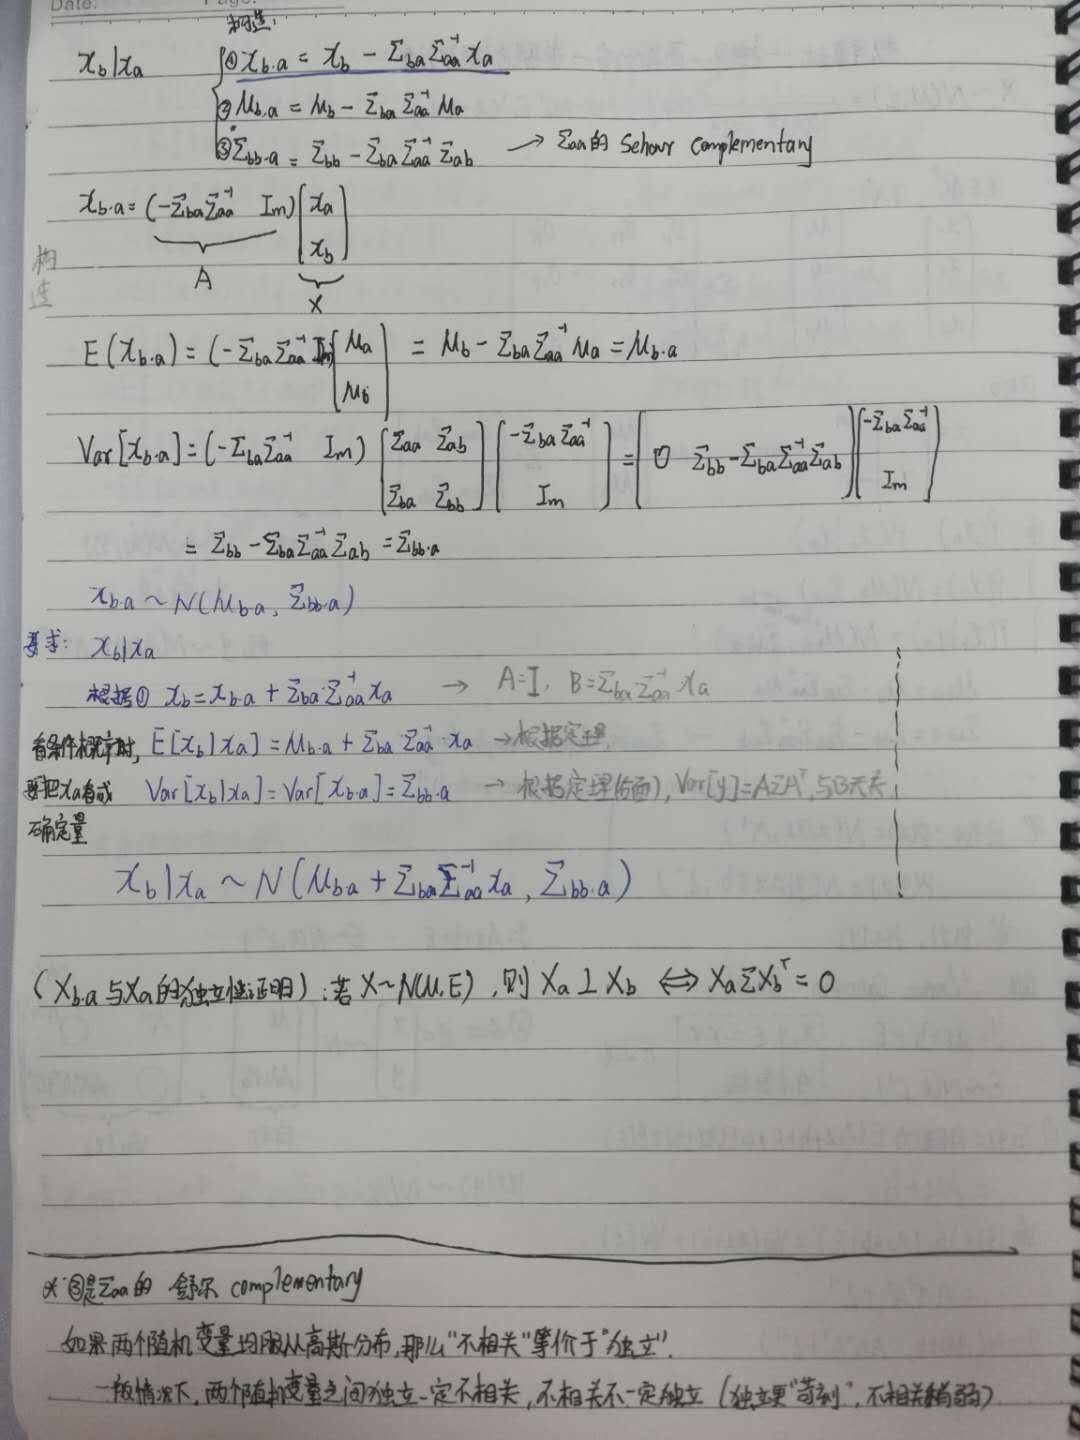 Date:
构造:
x_b|x_a ① x_{b·a} = x_b - Σ_{ba}Σ_{aa}^{-1}x_a
② μ_{b·a} = μ_b - Σ_{ba}Σ_{aa}^{-1}μ_a
③ Σ_{bb·a} = Σ_{bb} - Σ_{ba}Σ_{aa}^{-1}Σ_{ab} → Σ_{aa}的 Schour Complementary
x_{b·a} = (-Σ_{ba}Σ_{aa}^{-1} I_m) [x_a
x_b]
A X
构造
E(x_{b·a}) = (-Σ_{ba}Σ_{aa}^{-1} I_m) [μ_a
μ_b] = μ_b - Σ_{ba}Σ_{aa}^{-1}μ_a = μ_{b·a}
Var[x_{b·a}] = (-Σ_{ba}Σ_{aa}^{-1} I_m) [Σ_{aa} Σ_{ab}
Σ_{ba} Σ_{bb}] [-Σ_{ba}Σ_{aa}^{-1}
I_m] = [0 Σ_{bb}-Σ_{ba}Σ_{aa}^{-1}Σ_{ab}] [-Σ_{ba}Σ_{aa}^{-1}
I_m]
= Σ_{bb} - Σ_{ba}Σ_{aa}^{-1}Σ_{ab} = Σ_{bb·a}
x_{b·a} ~ N(μ_{b·a}, Σ_{bb·a})
要求: x_b|x_a
根据① x_b = x_{b·a} + Σ_{ba}·Σ_{aa}^{-1}x_a → A=I, B=Σ_{ba}Σ_{aa}^{-1}x_a
有条件概率时, E[x_b|x_a] = μ_{b·a} + Σ_{ba}·Σ_{aa}^{-1}·x_a → 根据定理,
要把x_a看成 Var[x_b|x_a] = Var[x_{b·a}] = Σ_{bb·a} → 根据定理(后面), Var[y]=AΣA^T, 与B无关
确定量
x_b|x_a ~ N(μ_{b·a} + Σ_{ba}Σ_{aa}^{-1}x_a, Σ_{bb·a})
(X_{b·a}与X_a的独立性证明): 若X~N(μ,Σ), 则 X_a⊥X_b ⟺ X_aΣX_b^T = 0
* ③是Σ_{aa}的 舒尔 complementary
如果两个随机变量均服从高斯分布, 那么"不相关"等价于"独立".
一般情况下, 两个随机变量之间独立一定不相关, 不相关不一定独立 (独立更"苛刻", 不相关稍弱)